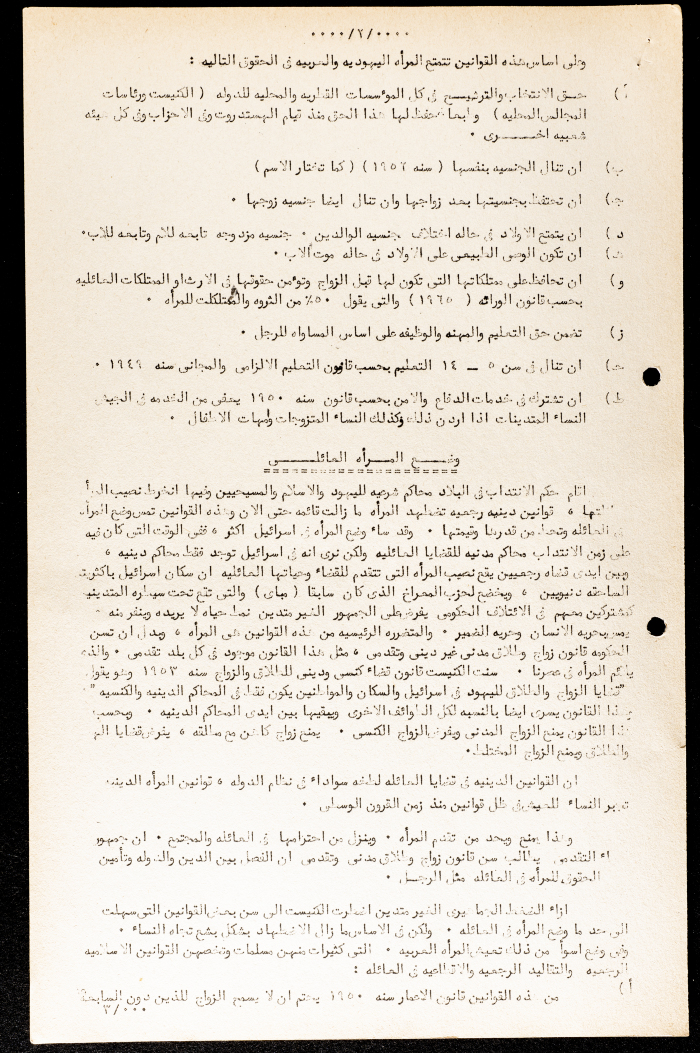 ٠٠٠٠/٢/٠٠٠٠
وعلى اساس هذه القوانين تتمتع المرأه اليهوديه والعربيه في الحقوق التاليه :
أ) حق الانتخاب والترشيح في كل المؤسسات القطريه والمحليه للدوله ( الكنيست ورئاسات
المجالس المحليه ) وايضا تحفظ لها هذا الحق منذ قيام الهستدروت وفي الاحزاب وفي كل هيئه
شعبيه اخرى ٠
ب) ان تنال الجنسيه بنفسها ( سنه ١٩٥٢ ) ( كما تختار الاسم )
ج) ان تحتفظ بجنسيتها بعد زواجها وان تنال ايضا جنسيه زوجها ٠
د) ان يتمتع الاولاد في حاله اختلاف جنسيه الوالدين ٠ جنسيه مزدوجه تابعه للام وتابعه للاب٠
ه) ان تكون الوصي الطبيعي على الاولاد في حاله موت الاب ٠
و) ان تحافظ على ممتلكاتها التي تكون لها قبل الزواج وتؤمن حقوقها في الارث او الممتلكات العائليه
بحسب قانون الوراثه ( ١٩٦٥ ) والتي يقول ٥٠٪ من الثروه والممتلكات للمرأه ٠
ز) تضمن حق التعليم والمهنه والوظيفه على اساس المساواه للرجل ٠
ح) ان تنال في سن ٥ ــ ١٤ التعليم بحسب قانون التعليم الالزامي والمجاني سنه ١٩٤٩ ٠
ط) ان تشترك في خدمات الدفاع والامن بحسب قانون سنه ١٩٥٠ يعفى من الخدمه في الجيش
النساء المتدينات اذا اردن ذلك وكذلك النساء المتزوجات وامهات الاطفال ٠
وضع المرأه العائلي
اقام حكم الانتداب في البلاد محاكم شرعيه لليهود والاسلام والمسيحيين وفيها انخرط نصيب
قوانين دينيه رجعيه تضطهد المرأه ما زالت قائمه حتى الان وهذه القوانين تمس وضع المرأه
في العائله وتحط من قدرها وقيمتها ٠ وقد ساء وضع المرأه في اسرائيل اكثر ٠ ففي الوقت التي كان فيه
على زمن الانتداب محاكم مدنيه للقضايا العائليه ولكن نرى انه في اسرائيل توجد فقط محاكم دينيه ٠
وبين ايدي قضاه رجعيين يقع نصيب المرأه التي تتقدم للقضاء وحياتها العائليه ان سكان اسرائيل باكثريته
الساحقه دنيويين ٠ ويخضع لحزب المعراخ الذي كان سابقا ( مباي ) والتي تقع تحت سيطره المتدينين
كمشتركين معهم في الائتلاف الحكومي يفرض على الجمهور الغير متدين نمط حياه لا يريده وينفر منه ٠
يمس بحريه الانسان وحريه الضمير ٠ والمتضرره الرئيسيه من هذه القوانين هي المرأه ٠ وبدل ان تسن
الحكومه قانون زواج وطلاق مدني غير ديني وتقدمي ٠ مثل هذا القانون موجود في كل بلد تقدمي ٠ والذي
يلائم المرأه في عصرنا ٠ سنت الكنيست قانون قضاء كنسي وديني للطلاق والزواج سنه ١٩٥٣ وهو يقول
"قضايا الزواج والطلاق لليهود في اسرائيل والسكان والمواطنين يكون فقط في المحاكم الدينيه والكنسيه"٠
وهذا القانون يسرى ايضا بالنسبه لكل الطوائف الاخرى ويبقيها بين ايدى المحاكم الدينيه ٠ وبحسب
هذا القانون يمنع الزواج المدني ويفرض الزواج الكنسي ٠ يمنع زواج كاهن مع مطلقه ٠ يفرض قضايا
والطلاق ويمنع الزواج المختلط٠
ان القوانين الدينيه في قضايا العائله لطخه سوداء في نظام الدوله ٠ قوانين المرأه الدينيه
تجبر النساء للعيش في ظل قوانين منذ زمن القرون الوسطى ٠
وهذا يمنع ويحد من تقدم المرأه ٠ وينزل من احترامها في العائله والمجتمع ٠ ان جمهور
التقدمي يطالب سن قانون زواج وطلاق مدني وتقدمي ان الفصل بين الدين والدوله وتأمين
الحقوق للمرأه في العائله مثل الرجل ٠
ازاء الضغط الجماهيري الغير متدين اضطرت الكنيست الى سن بعض القوانين التي سهلت
الى حد ما وضع المرأه في العائله ٠ ولكن في الاساس ما زال الاضطهاد بشكل بشع تجاه النساء ٠
وفي وضع اسوأ من ذلك تعيش المرأه العربيه ٠ التي كثيرات منهن مسلمات وتخصهن القوانين الاسلاميه
الرجعيه والتقاليد الرجعيه والاقطاعيه في العائله :
أ) من هذه القوانين قانون الاعمار سنه ١٩٥٠ يحتم ان لا يسمح الزواج للذين دون السابعة
٣/٠٠٠